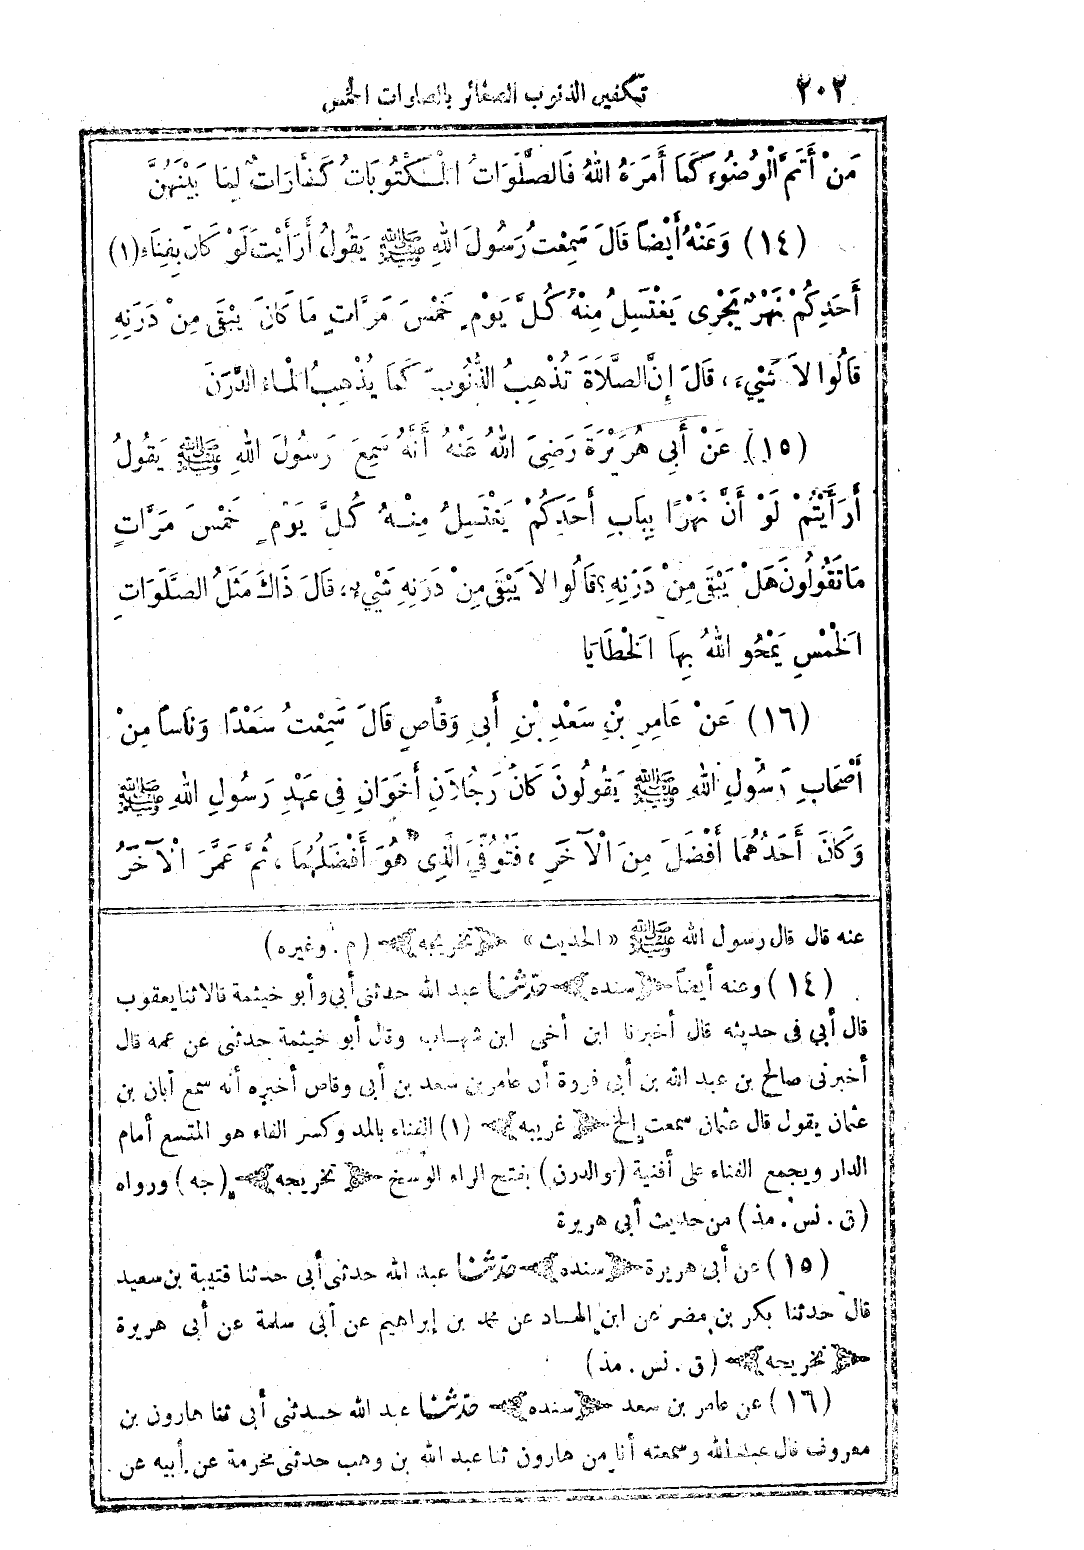 ٢٠٢ تكفير الذنوب الصغائر بالصلوات الخمس
مَنْ أَتَمَّ الْوُضُوءَ كَمَا أَمَرَهُ اللهُ فَالصَّلَوَاتُ الْمَكْتُوبَاتُ كَفَّارَاتٌ لِمَا بَيْنَهُنَّ
(١٤) وَعَنْهُ أَيْضاً قَالَ سَمِعْتُ رَسُولَ اللهِ ﷺ يَقُولُ أَرَأَيْتَ لَوْ كَانَ بِفِنَاءِ (١)
أَحَدِكُمْ نَهْرٌ يَجْرِى يَغْتَسِلُ مِنْهُ كُلَّ يَوْمٍ خَمْسَ مَرَّاتٍ مَا كَانَ يَبْقَى مِنْ دَرَنِهِ
قَالُوا لاَ شَيْءَ، قَالَ إِنَّ الصَّلاَةَ تُذْهِبُ الذُّنُوبَ كَمَا يُذْهِبُ الْمَاءُ الدَّرَنَ
(١٥) عَنْ أَبِي هُرَيْرَةَ رَضِيَ اللهُ عَنْهُ أَنَّهُ سَمِعَ رَسُولَ اللهِ ﷺ يَقُولُ
أَرَأَيْتُمْ لَوْ أَنَّ نَهْرًا بِبَابِ أَحَدِكُمْ يَغْتَسِلُ مِنْهُ كُلَّ يَوْمٍ خَمْسَ مَرَّاتٍ
مَا تَقُولُونَ هَلْ يَبْقَى مِنْ دَرَنِهِ؟ قَالُوا لاَ يَبْقَى مِنْ دَرَنِهِ شَيْءٌ، قَالَ ذَاكَ مَثَلُ الصَّلَوَاتِ
الْخَمْسِ يَمْحُو اللهُ بِهَا الْخَطَايَا
(١٦) عَنْ عَامِرِ بْنِ سَعْدِ بْنِ أَبِي وَقَّاصٍ قَالَ سَمِعْتُ سَعْدًا وَنَاساً مِنْ
أَصْحَابِ رَسُولِ اللهِ ﷺ يَقُولُونَ كَانَ رَجُلاَنِ أَخَوَانِ فِى عَهْدِ رَسُولِ اللهِ ﷺ
وَكَانَ أَحَدُهُمَا أَفْضَلَ مِنَ الْآخَرِ، فَتُوُفِّيَ الَّذِى هُوَ أَفْضَلُهُمَا، ثُمَّ عَمَّرَ الْآخَرُ
عنه قال قال رسول الله ﷺ «الحديث» ﴿تخريجه﴾ (م. وغيره)
(١٤) وعنه أيضاً ﴿سنده﴾ حدثنا عبد الله حدثنى أبى وأبو خيثمة قالا ثنا يعقوب
قال أبي فى حديثه قال أخبرنا ابن أخى ابن شهاب وقال أبو خيثمة حدثنى عن عمه قال
أخبرنى صالح بن عبد الله بن أبى فروة أن عامر بن سعد بن أبى وقاص أخبره أنه سمع أبان بن
عثمان يقول قال عثمان سمعت إلخ ﴿غريبه﴾ (١) الفناء بالمد وكسر الفاء هو المتسع أمام
الدار ويجمع الفناء على أفنية (والدرن) بفتح الراء الوسخ ﴿تخريجه﴾ (جه) ورواه
(ق. نس. مذ) من حديث أبى هريرة
(١٥) عن أبى هريرة ﴿سنده﴾ حدثنا عبد الله حدثنى أبى حدثنا قتيبة بن سعيد
قال حدثنا بكر بن مضر عن ابن الهاد عن محمد بن إبراهيم عن أبى سلمة عن أبى هريرة
﴿تخريجه﴾ (ق. نس. مذ)
(١٦) عن عامر بن سعد ﴿سنده﴾ حدثنا عبد الله حدثنى أبى ثنا هارون بن
معروف قال عبد الله وسمعته أنا من هارون ثنا عبد الله بن وهب حدثنى مخرمة عن أبيه عن